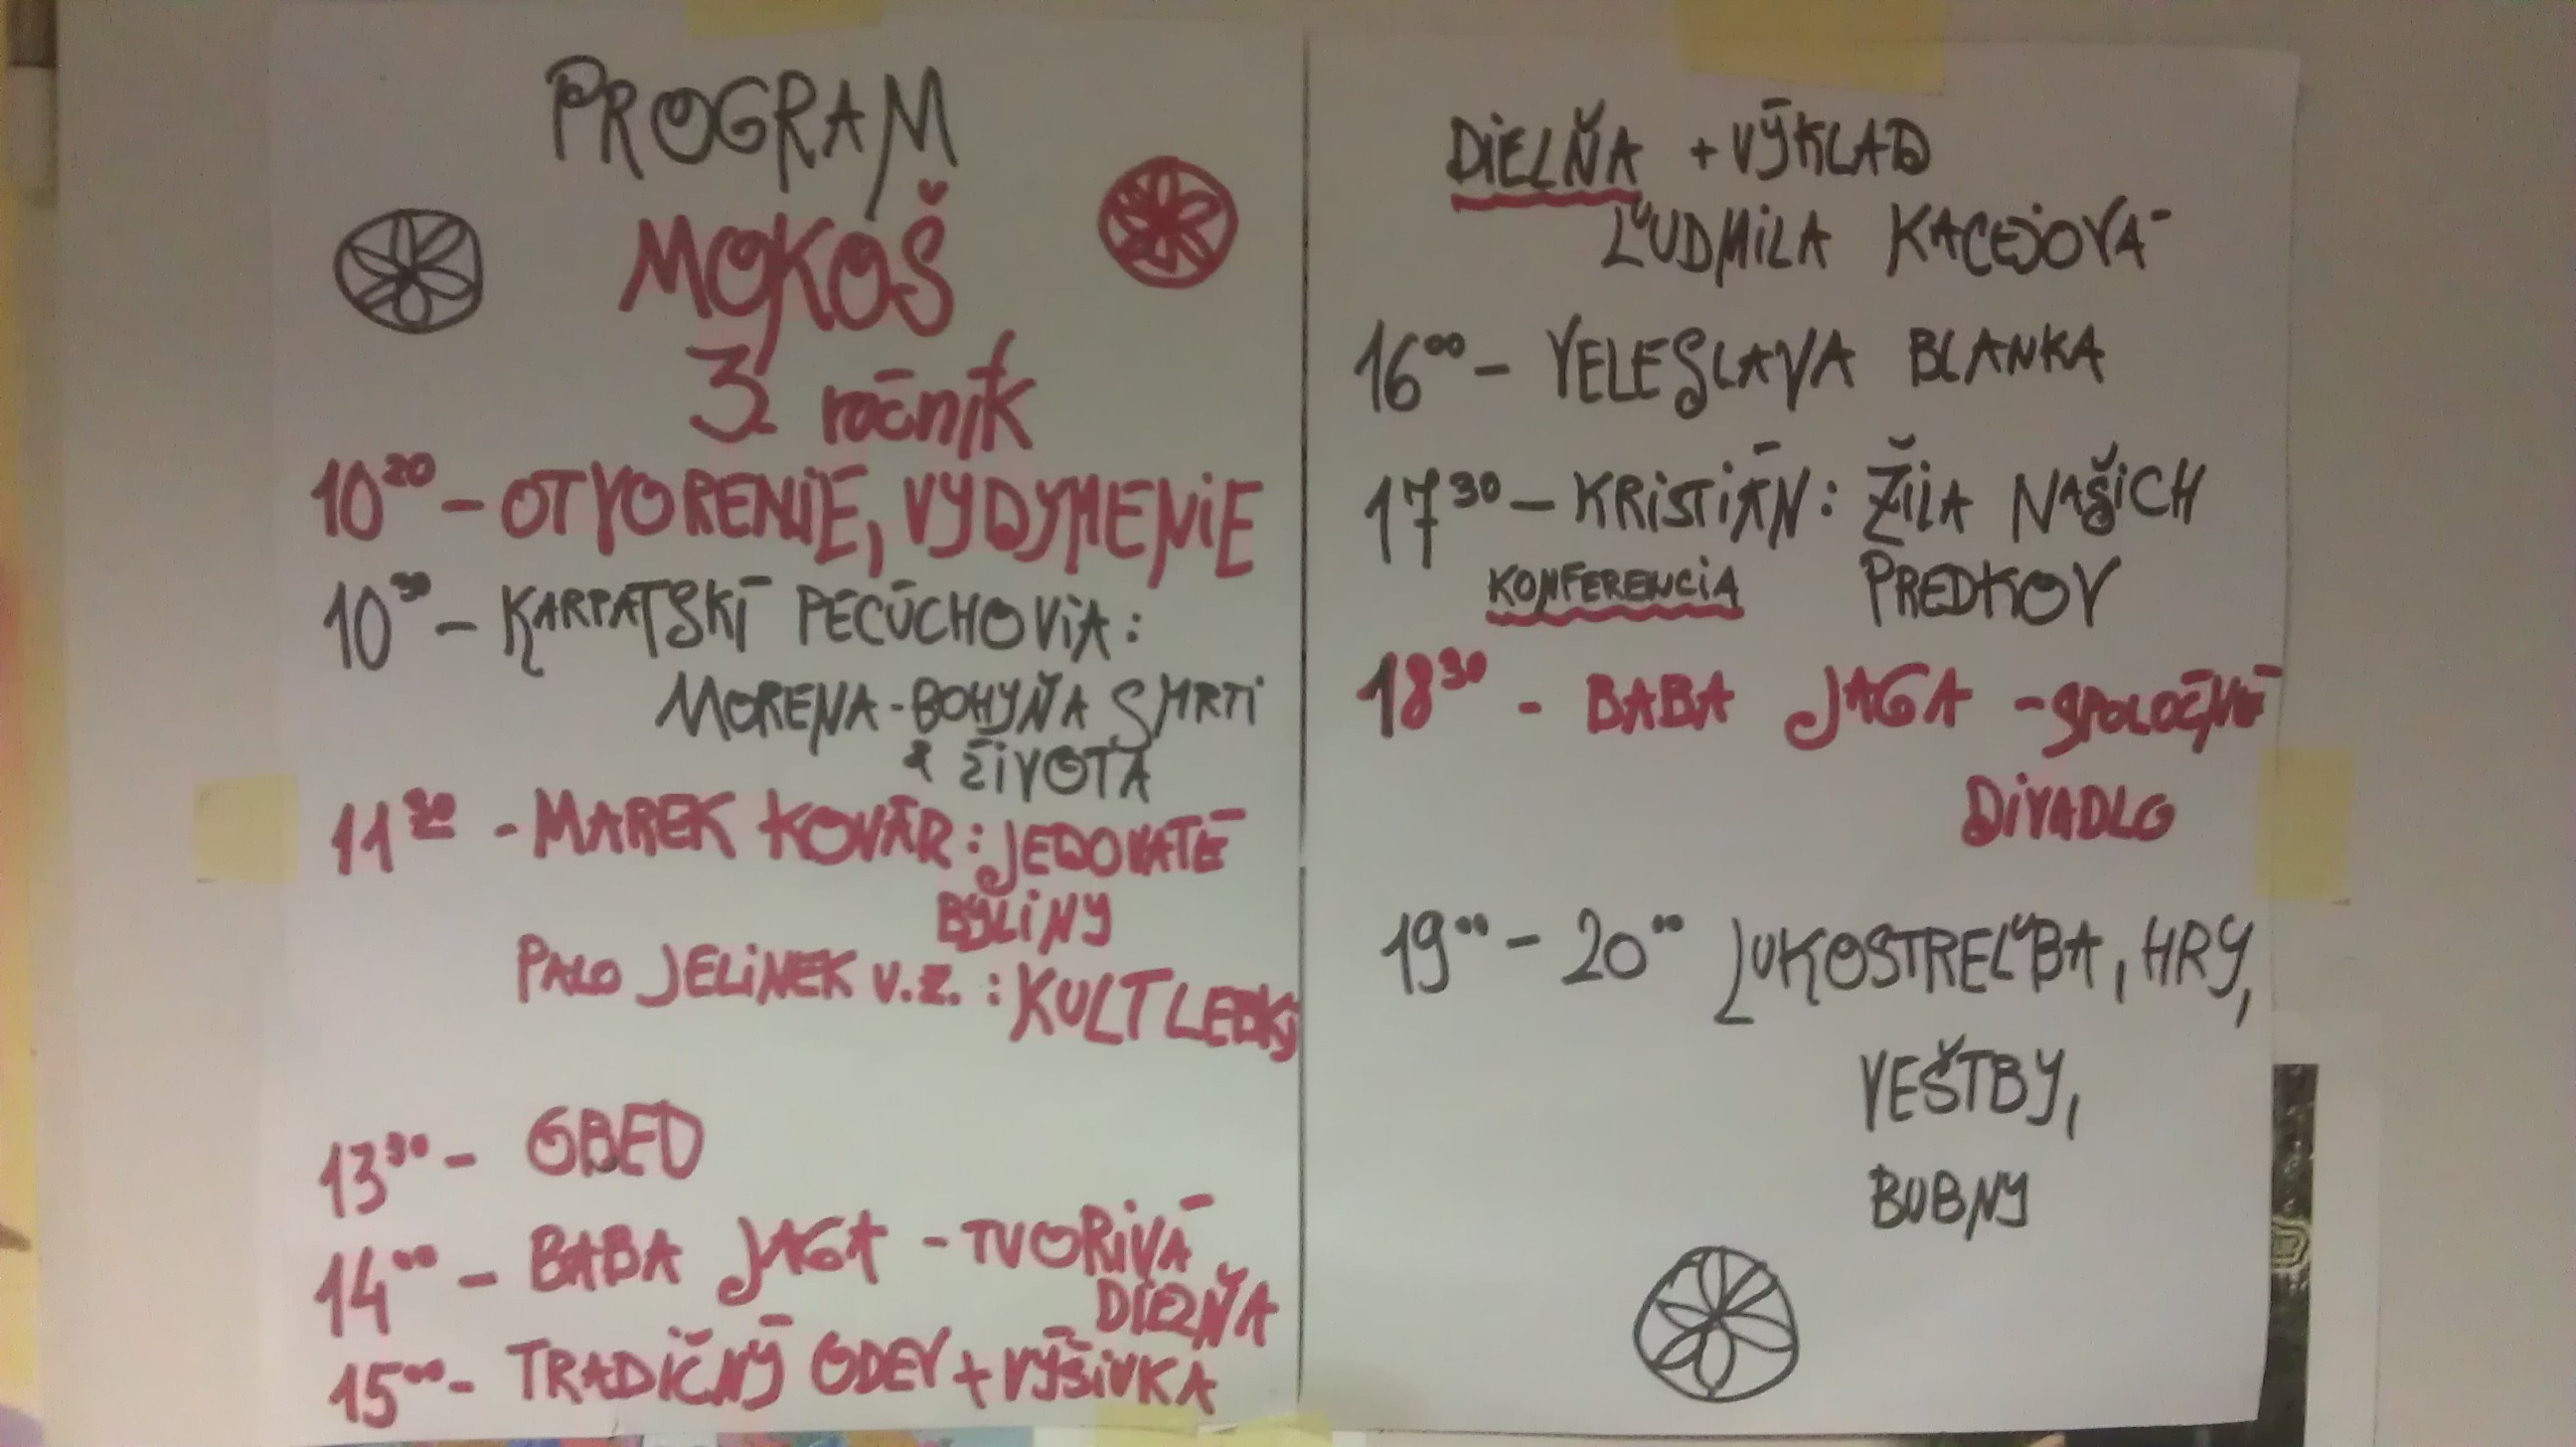 PROGRAM
MOKOŠ
3. ročník
10²⁰ - OTVORENIE, VYDYMENIE
10³⁰ - KARPATSKÍ PECÚCHOVIA:
MORENA - BOHYŇA SMRTI
& ŽIVOTA
11³⁰ - MAREK KOVÁR: JEDOVATÉ
BYLINY
PALO JELINEK V.Z.: KULT LEBKY
13³⁰ - OBED
14⁰⁰ - BABA JAGA - TVORIVÁ
DIELŇA
15⁰⁰ - TRADIČNÝ ODEV + VÝŠIVKA
DIELŇA + VÝKLAD
ĽUDMILA KACEJOVÁ
16⁰⁰ - VELESLAVA BLANKA
17³⁰ - KRISTIÁN: ŽILA NAŠICH
KONFERENCIA PREDKOV
18³⁰ - BABA JAGA - SPOLOČNÉ
DIVADLO
19⁰⁰ - 20⁰⁰ LUKOSTREĽBA, HRY,
VEŠTBY,
BUBNY